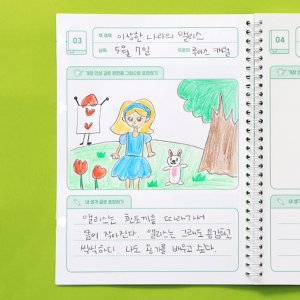 03
책 제목 이상한 나라의 앨리스
날짜 5월 7일 지은이 루이스 캐럴
가장 인상 깊은 장면을 그림으로 표현하기
내 생각 글로 표현하기
앨리스는 흰토끼를 따라가서
몸이 작아진다. 앨리스는 그래도 용감하고
씩씩하다. 나도 용기를 배우고 싶다.
04